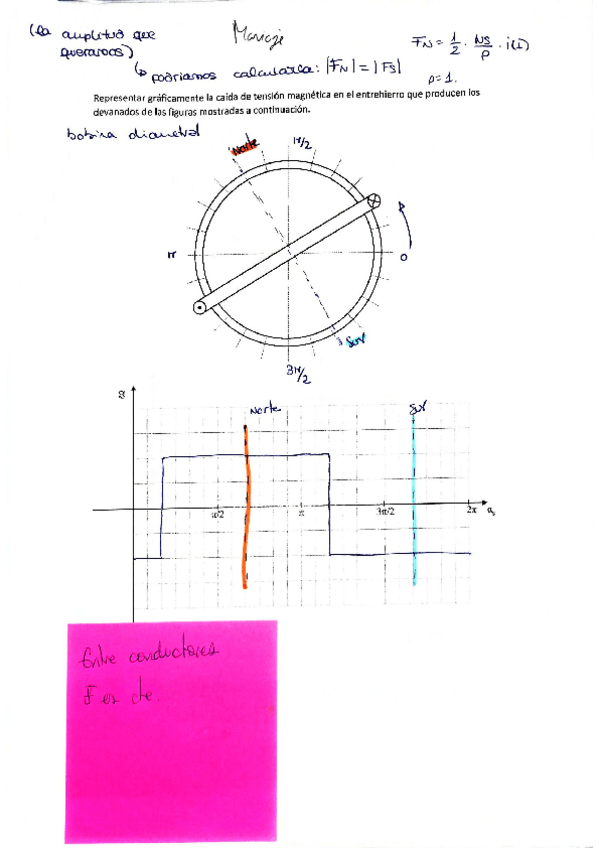 (la amplitud que
queramos)
↳ podriamos calcularla: |F_N| = |F_S|
F_N = 1/2 · N_S/p · i(t)
p=1.
Representar gráficamente la caída de tensión magnética en el entrehierro que producen los
devanados de las figuras mostradas a continuación.
bobina diametral
Norte
π/2
π
0
Sur
3π/2
Norte
Sur
π/2
π
3π/2
2π
Entre conductores
F es cte